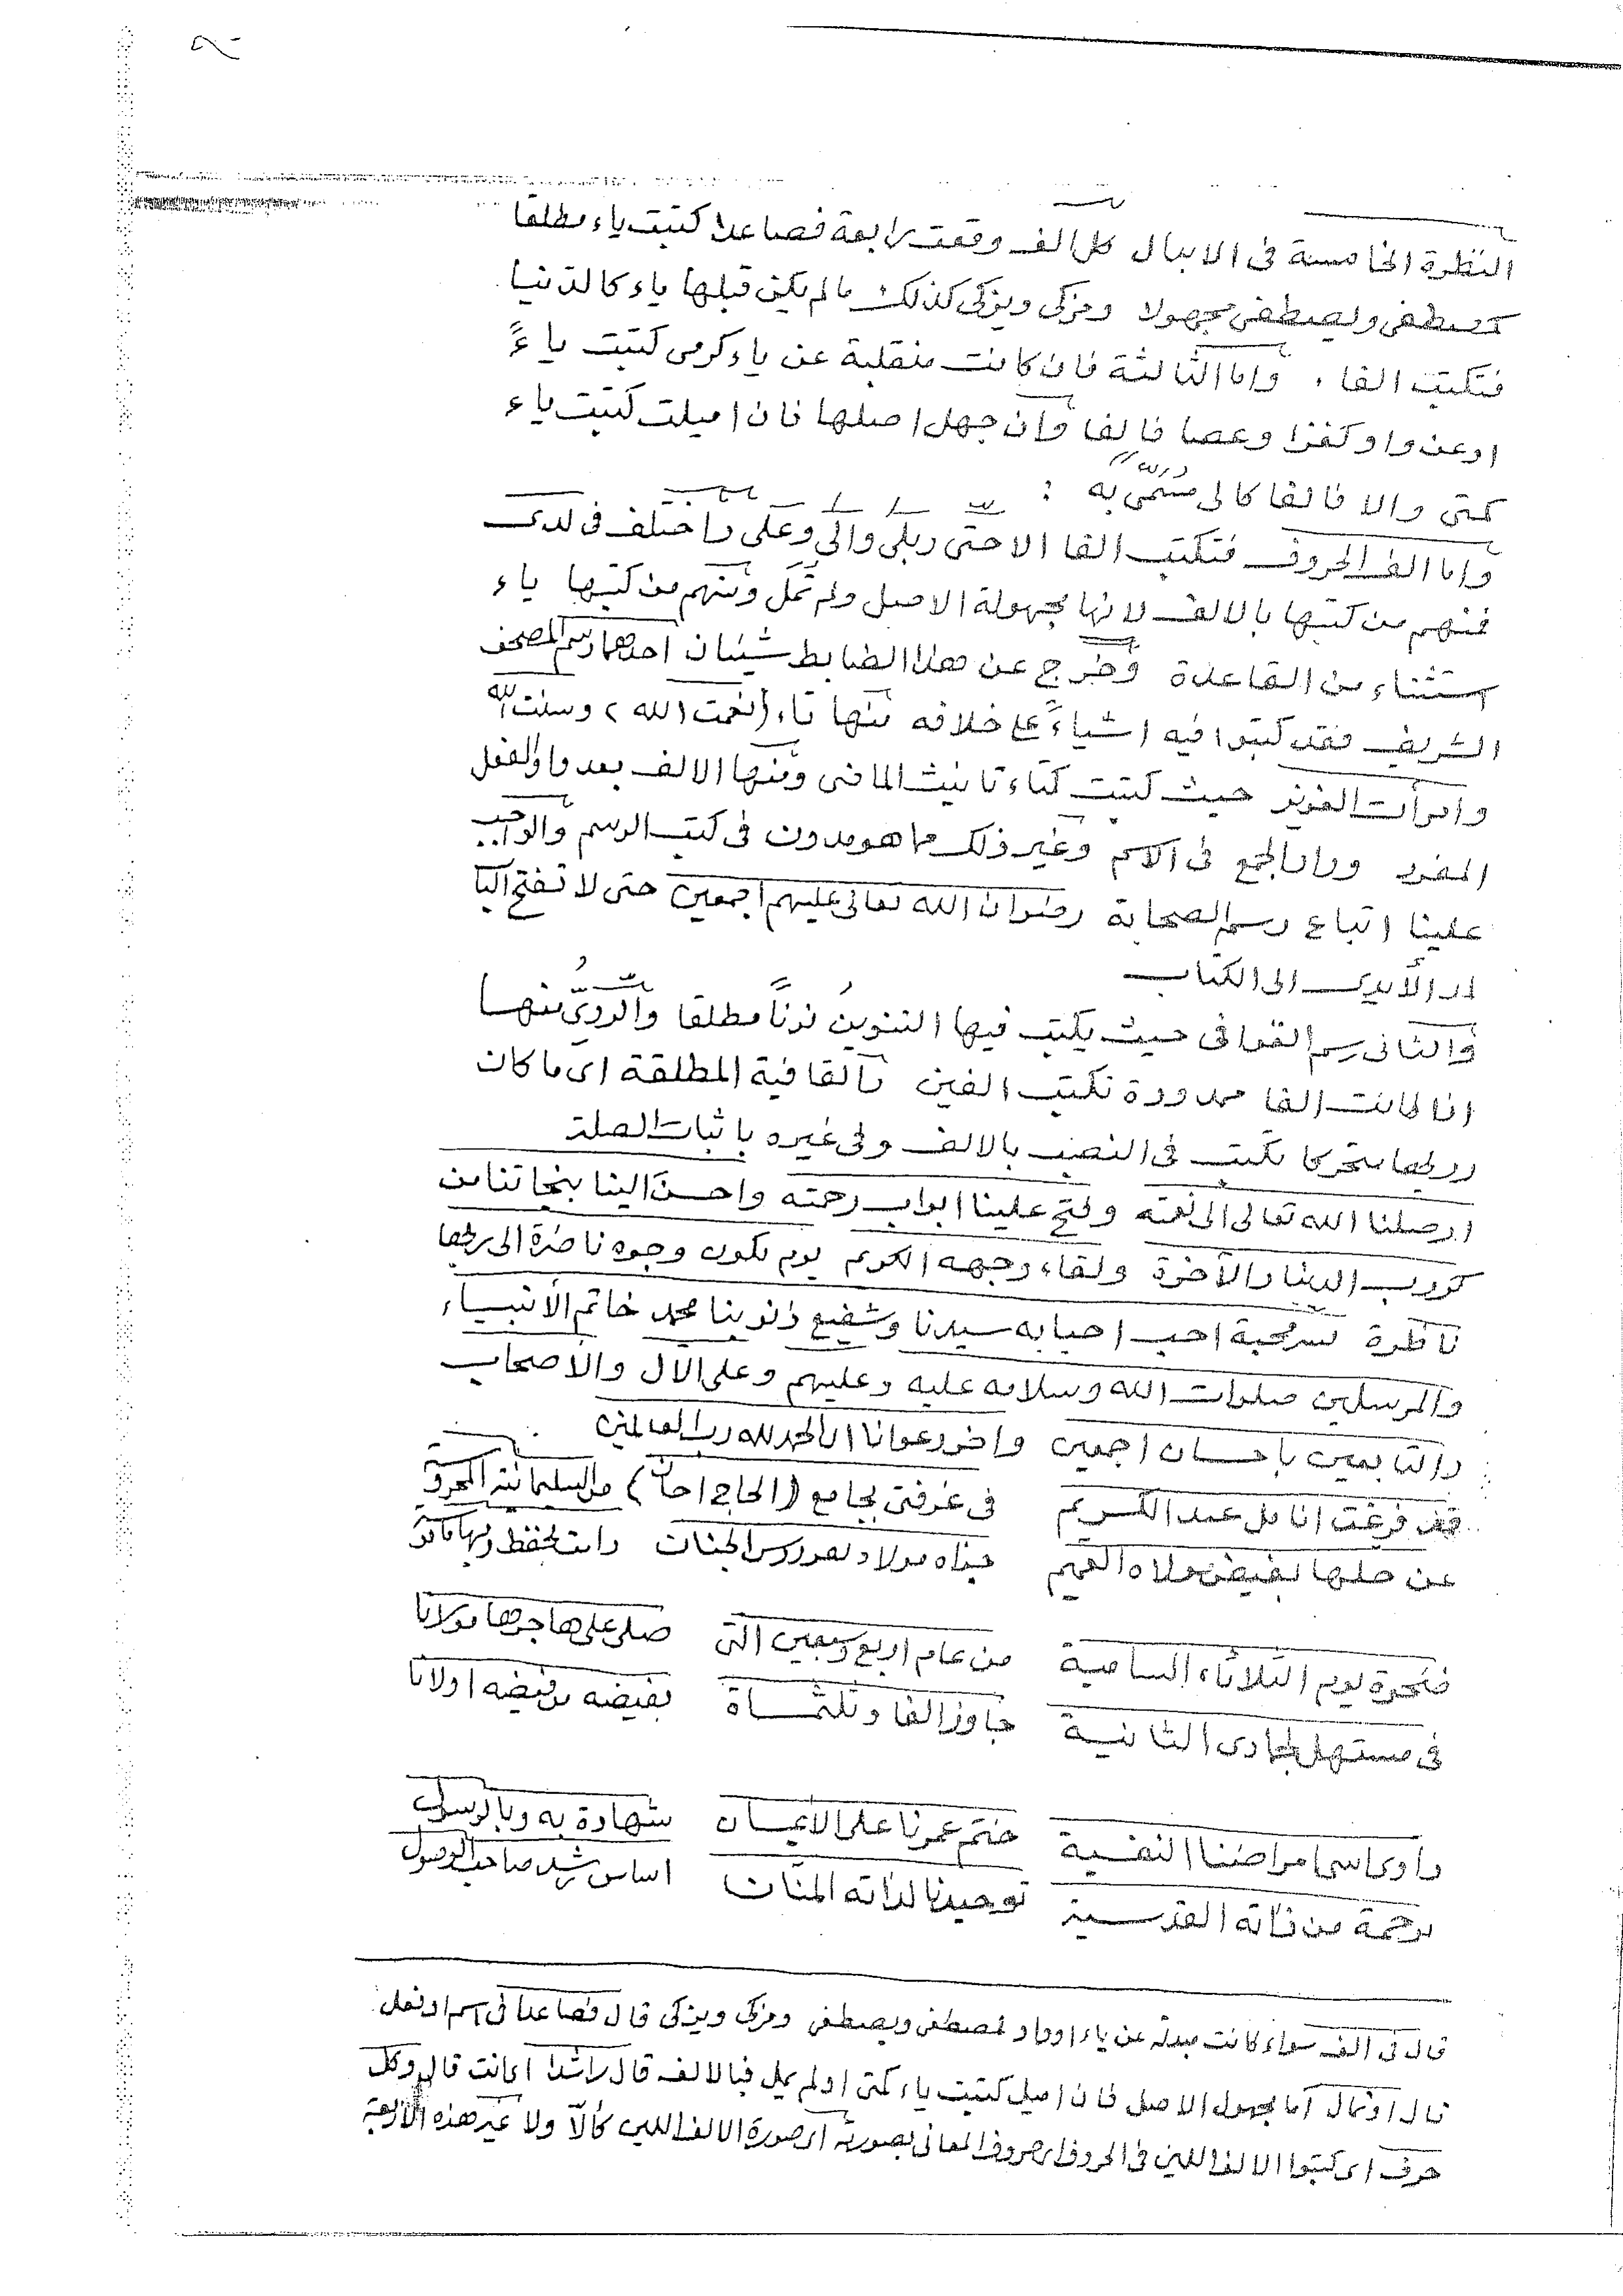 النظرة الخامسة فى الابدال كل الف وقعت رابعة فصاعدا كتبت ياء مطلقا
كمصطفى ويصطفى مجهولا ومزكى ويزكى كذلك مالم يكن قبلها ياء كالدنيا
فتكتب الفا، واما الثالثة فان كانت منقلبة عن ياء كرمى كتبت ياءً
اوعن واو كغزا وعصا فالفا وان جهل اصلها فان اميلت كتبت ياء
كمتى والا فالفا كالى مسمّى به :
واما الف الحروف فتكتب الفا الا حتى وبلى والى وعلى واختلف فى لدى
فمنهم من كتبها بالالف لانها مجهولة الاصل ولم تمل ومنهم من كتبها ياء
استثناء من القاعدة وخرج عن هذا الضابط شيئان احدهما رسم المصحف
الشريف فقد كتبوا فيه اشياءً على خلافه منها تاء (نعمت الله) وسنت الله
وامرأت العزيز حيث كتبت كتاء تانيث الماضى ومنها الالف بعد واو الفعل
المفرد وواو الجمع فى الاسم وغير ذلك مما هو مدون فى كتب الرسم والواجب
علينا اتباع رسم الصحابة رضوان الله تعالى عليهم اجمعين حتى لا تفتح البا
الأيدى الى الكتاب
والثانى رسم القوافى حيث يكتب فيها التنوين نوناً مطلقا والروىّ منها
اذا كانت الفا ممدودة تكتب الفين والقافية المطلقة اى ما كان
رويها متحركا تكتب فى النصب بالالف وفى غيره باثبات الصلة
اوصلنا الله تعالى الى نعمته وفتح علينا ابواب رحمته واحسن الينا بنجاتنا من
كروب الدنيا والآخرة ولقاء وجهه الكريم يوم تكون وجوه ناضرة الى ربها
ناظرة بمحبة احب احبابه سيدنا وشفيع ذنوبنا محمد خاتم الأنبياء
والمرسلين صلوات الله وسلامه عليه وعليهم وعلى الآل والاصحاب
والتابعين باحسان اجمعين واخر دعوانا ان الحمد لله رب العالمين
قد فرغت انامل عبد الكريم فى غرفتى بجامع (الحاج احان) من السليمانية المحروسة
عن حلها بفيض مولاه العميم جزاه مولاه بفردوس الجنات دامت بحفظ ربها
فى ضحوة يوم الثلاثاء السامية من عام اربع وسبعين التى صلى على هاجرها مولانا
فى مستهل لجمادى الثانية جاوز الفا وثلثمائة بفيضه من فيضه اولانا
داوى اسى امراضنا النفسية ختم عمرنا على الأيمان شهادة به وبالرسول
برحمة من ذاته القدسية توحيدنا لذاته المنان اساس رشد صاحب الوصول
قال فى الف سواء كانت مبدلة عن ياء او واو كمصطفى ويصطفى ومزكى ويزكى قال فصاعدا فى اسم او فعل
قال او تمال اما مجهول الاصل فان اميل كتبت ياء كمتى او لم يمل فبالالف قال راشدا اى انت قال وكل
حرف اى كتبوا الالف اللين فى الحروف اى حروف المعانى بصورته اى صورة الالف اللين كألا ولا غير هذه الاربعة